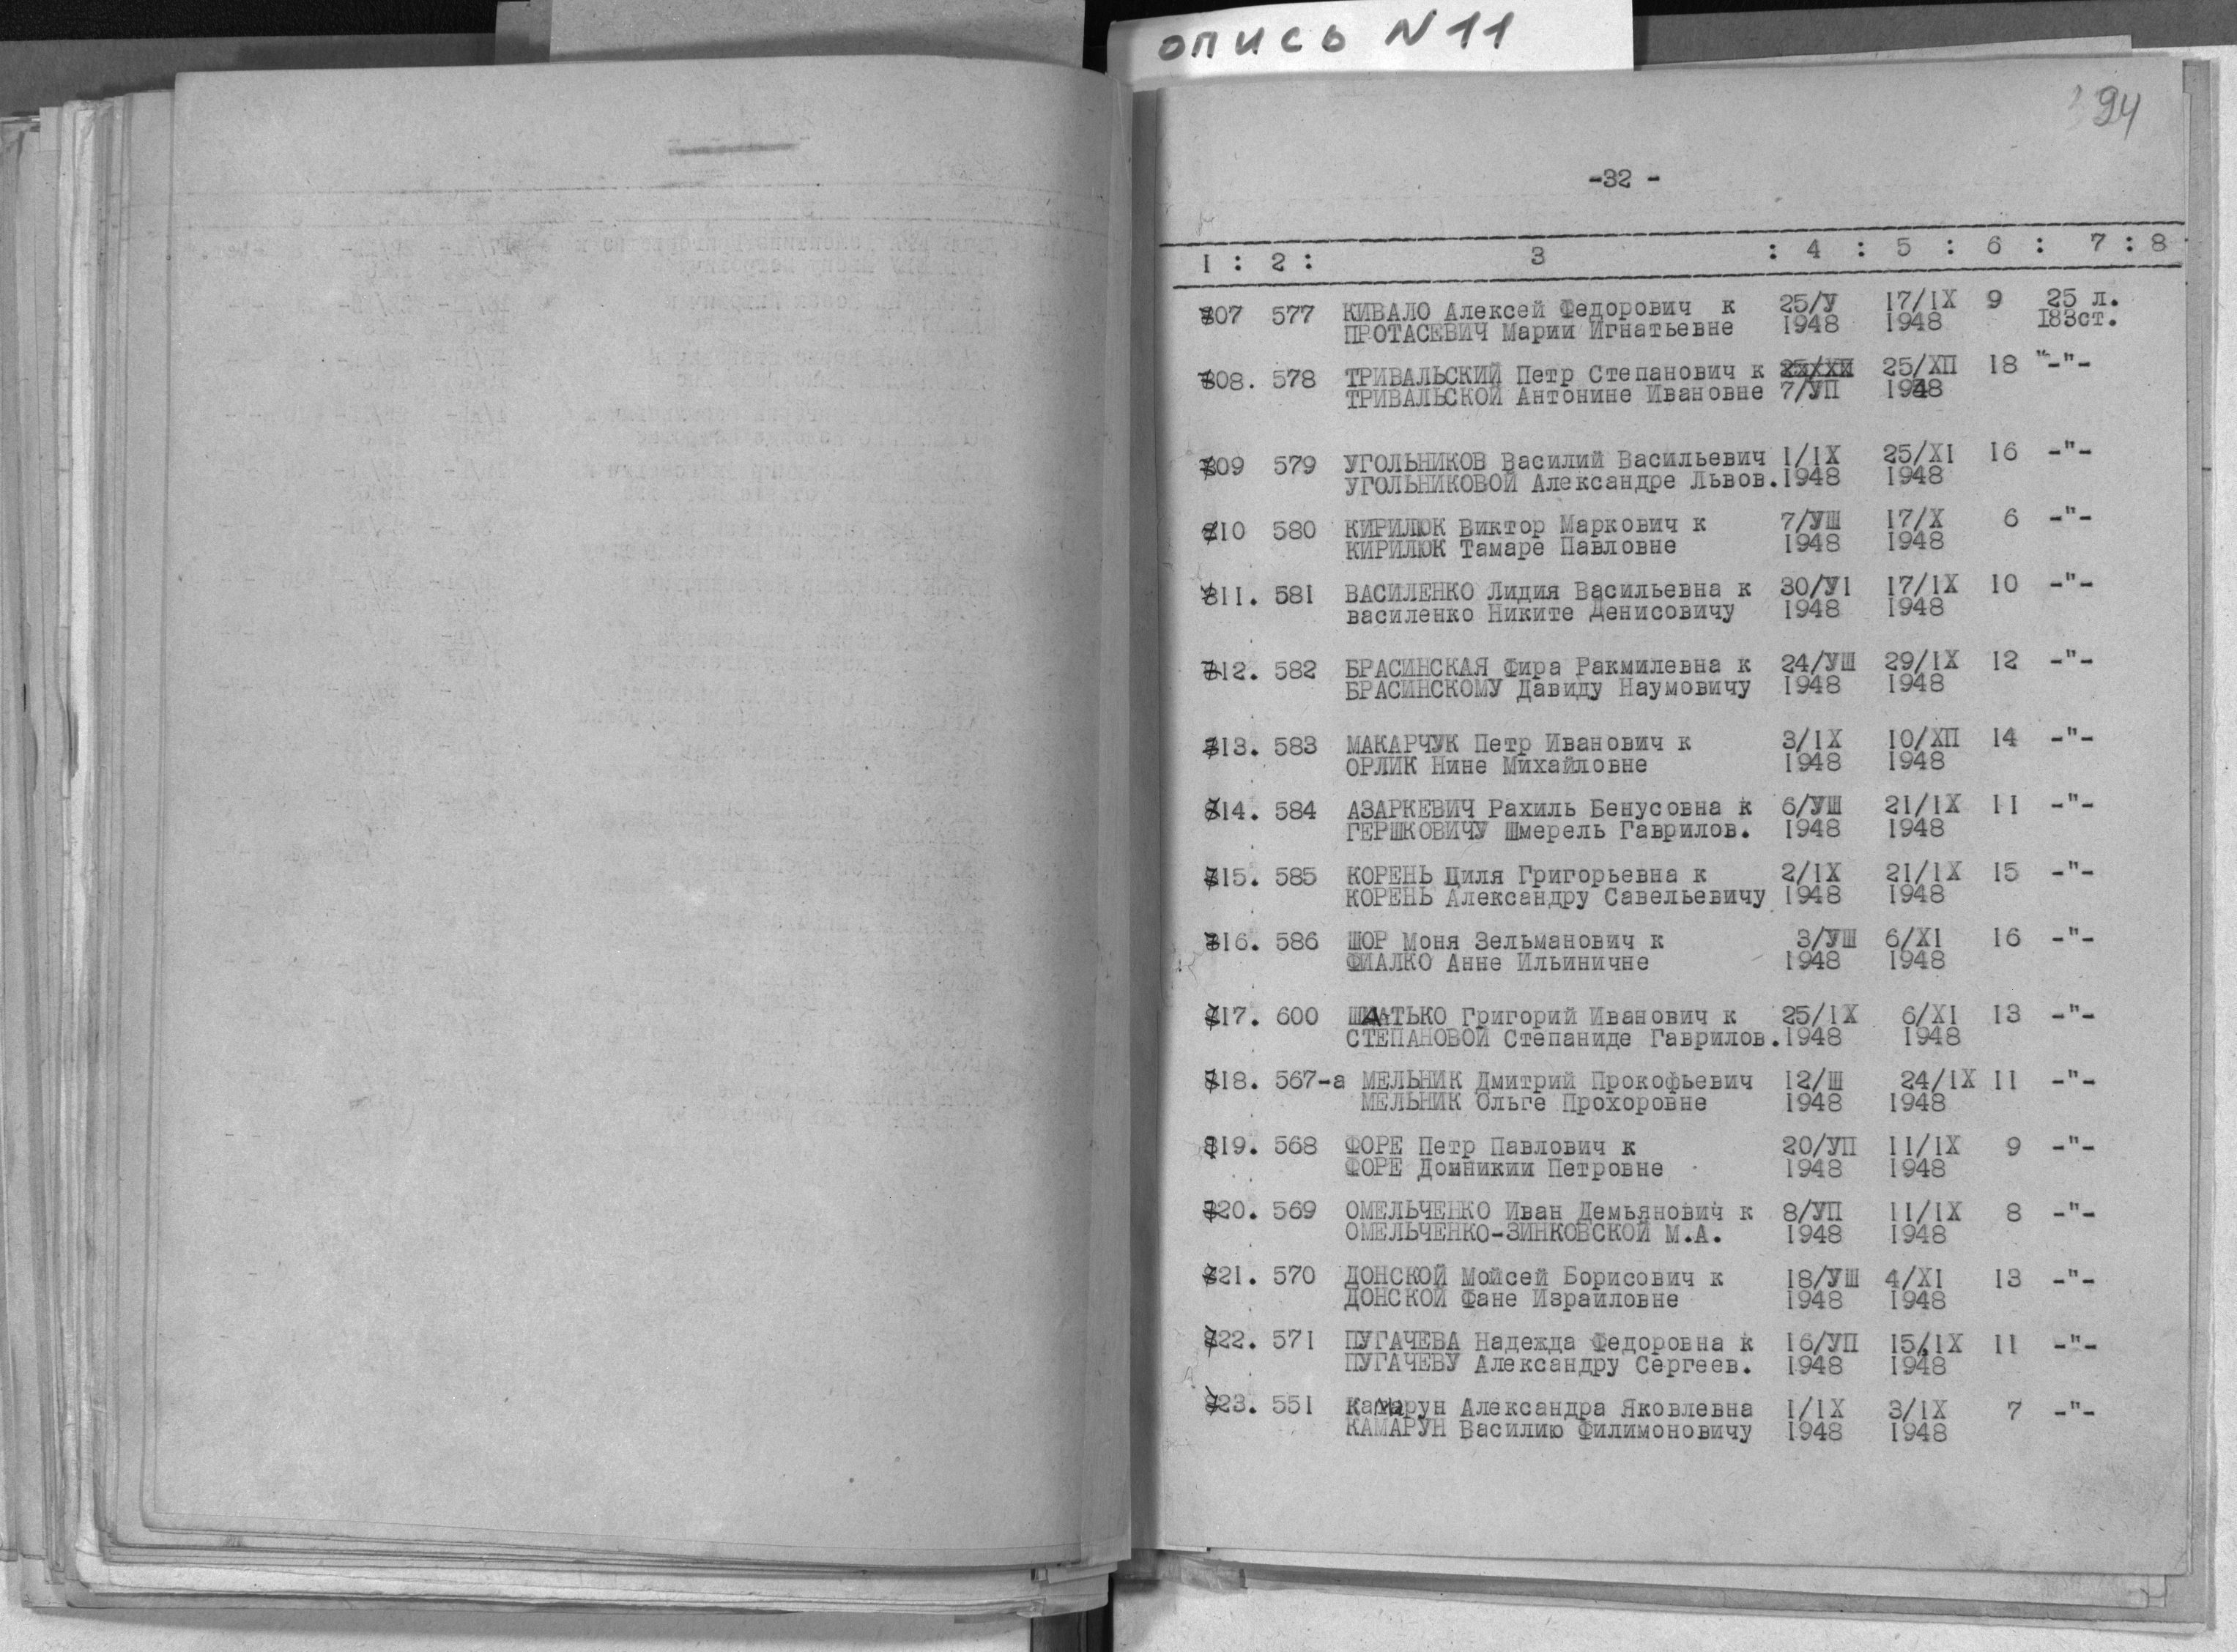 опись N 11
94
-32 -
1 : 2 : 3 : 4 : 5 : 6 : 7 : 8
707 577 КИВАЛО Алексей Федорович к 25/У 17/1Х 9 25 л.
ПРОТАСЕВИЧ Марии Игнатьевне 1948 1948 183ст.
708. 578 ТРИВАЛЬСКИЙ Петр Степанович к 25/ХП 25/ХП 18 "-"-
ТРИВАЛЬСКОЙ Антонине Ивановне 7/УП 1948
709 579 УГОЛЬНИКОВ Василий Васильевич 1/1Х 25/Х1 16 -"-
УГОЛЬНИКОВОЙ Александре Львов. 1948 1948
710 580 КИРИЛЮК Виктор Маркович к 7/УШ 17/Х 6 -"-
КИРИЛЮК Тамаре Павловне 1948 1948
711. 581 ВАСИЛЕНКО Лидия Васильевна к 30/У1 17/1Х 10 -"-
василенко Никите Денисовичу 1948 1948
712. 582 БРАСИНСКАЯ Фира Ракмилевна к 24/УШ 29/1Х 12 -"-
БРАСИНСКОМУ Давиду Наумовичу 1948 1948
713. 583 МАКАРЧУК Петр Иванович к 3/1Х 10/ХП 14 -"-
ОРЛИК Нине Михайловне 1948 1948
714. 584 АЗАРКЕВИЧ Рахиль Бенусовна к 6/УШ 21/1Х 11 -"-
ГЕРШКОВИЧУ Шмерель Гаврилов. 1948 1948
715. 585 КОРЕНЬ Циля Григорьевна к 2/1Х 21/1Х 15 -"-
КОРЕНЬ Александру Савельевичу 1948 1948
716. 586 ШОР Моня Зельманович к 3/УШ 6/Х1 16 -"-
ФИАЛКО Анне Ильиничне 1948 1948
717. 600 ШАТЬКО Григорий Иванович к 25/1Х 6/Х1 13 -"-
СТЕПАНОВОЙ Степаниде Гаврилов. 1948 1948
718. 567-а МЕЛЬНИК Дмитрий Прокофьевич 12/Ш 24/1Х 11 -"-
МЕЛЬНИК Ольге Прохоровне 1948 1948
719. 568 ФОРЕ Петр Павлович к 20/УП 11/1Х 9 -"-
ФОРЕ Домникии Петровне 1948 1948
720. 569 ОМЕЛЬЧЕНКО Иван Демьянович к 8/УП 11/1Х 8 -"-
ОМЕЛЬЧЕНКО-ЗИНКОВСКОЙ М.А. 1948 1948
721. 570 ДОНСКОЙ Мойсей Борисович к 18/УШ 4/Х1 13 -"-
ДОНСКОЙ Фане Израиловне 1948 1948
722. 571 ПУГАЧЕВА Надежда Федоровна к 16/УП 15/1Х 11 -"-
ПУГАЧЕВУ Александру Сергеев. 1948 1948
723. 551 Камарун Александра Яковлевна 1/1Х 3/1Х 7 -"-
КАМАРУН Василию Филимоновичу 1948 1948